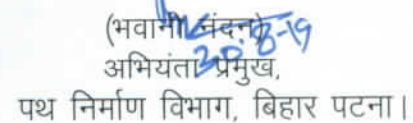 (भवानी नंदन)
20.8-19
अभियंता प्रमुख,
पथ निर्माण विभाग, बिहार पटना।